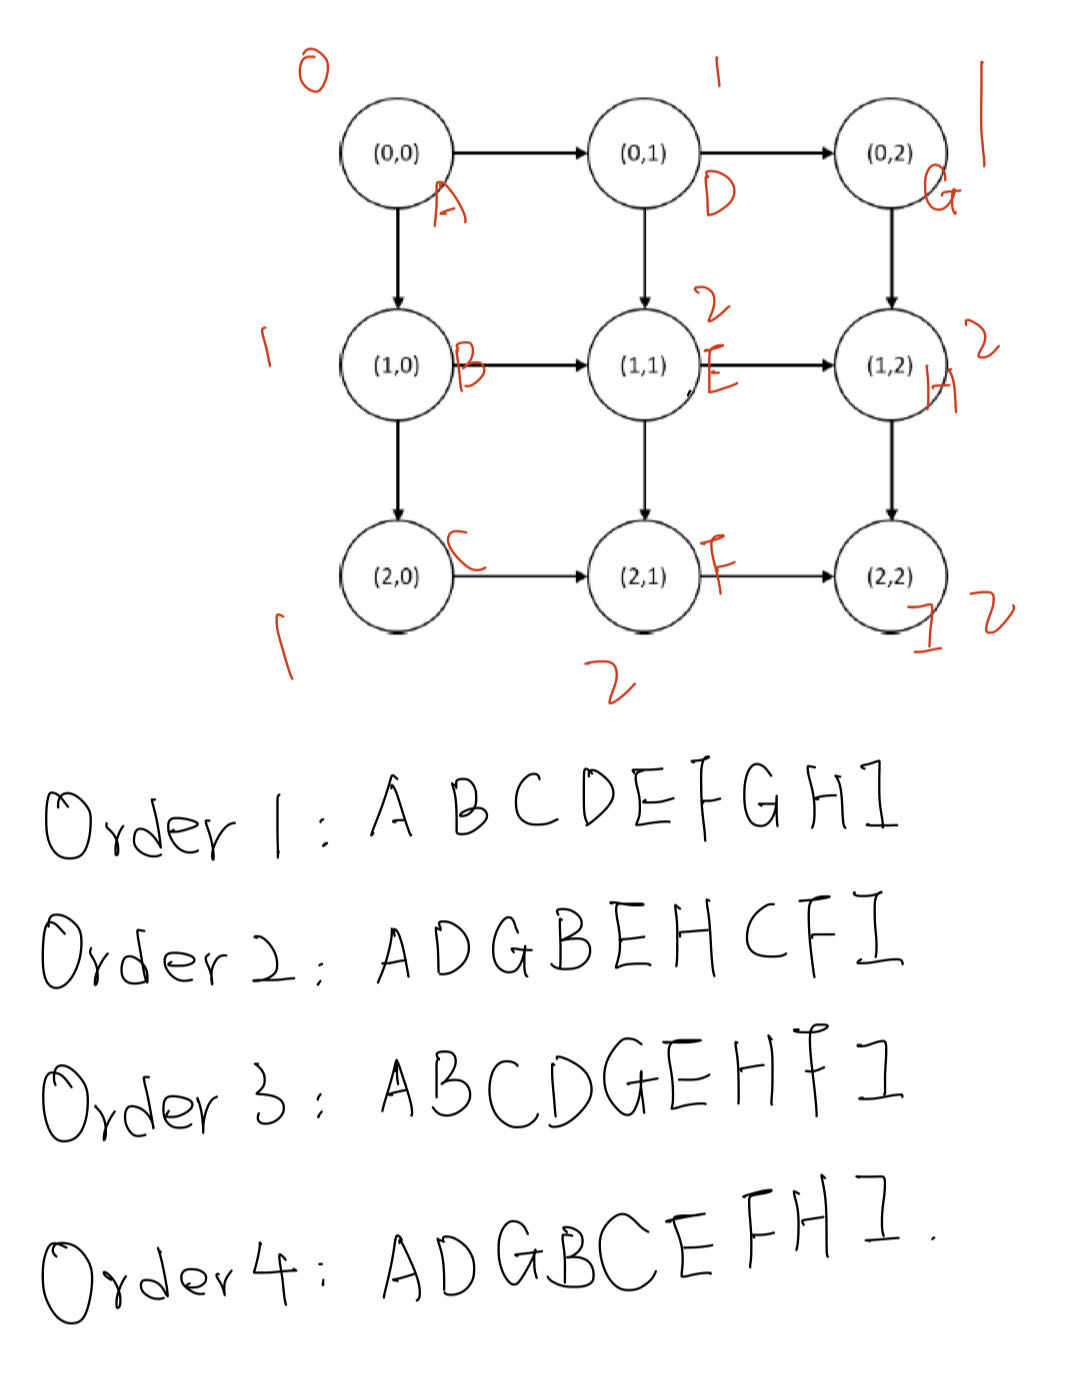 0 1 1
(0,0) (0,1) (0,2)
A D G
2
1 (1,0) B (1,1) E (1,2) H 2
C F
(2,0) (2,1) (2,2)
I 2
1 2
Order 1: A B C D E F G H I
Order 2: A D G B E H C F I
Order 3: A B C D G E H F I
Order 4: A D G B C E F H I.